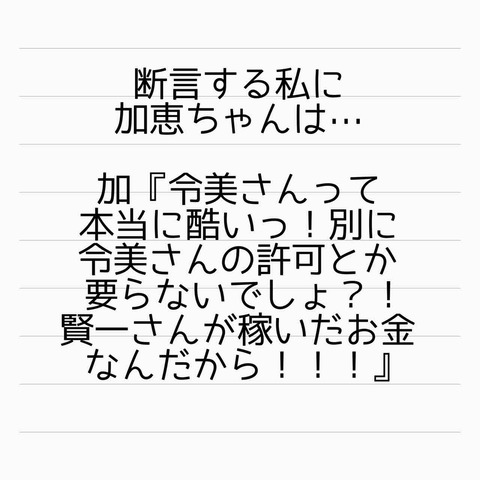 断言する私に
加恵ちゃんは…
加『令美さんって
本当に酷いっ！別に
令美さんの許可とか
要らないでしょ？！
賢一さんが稼いだお金
なんだから！！！』